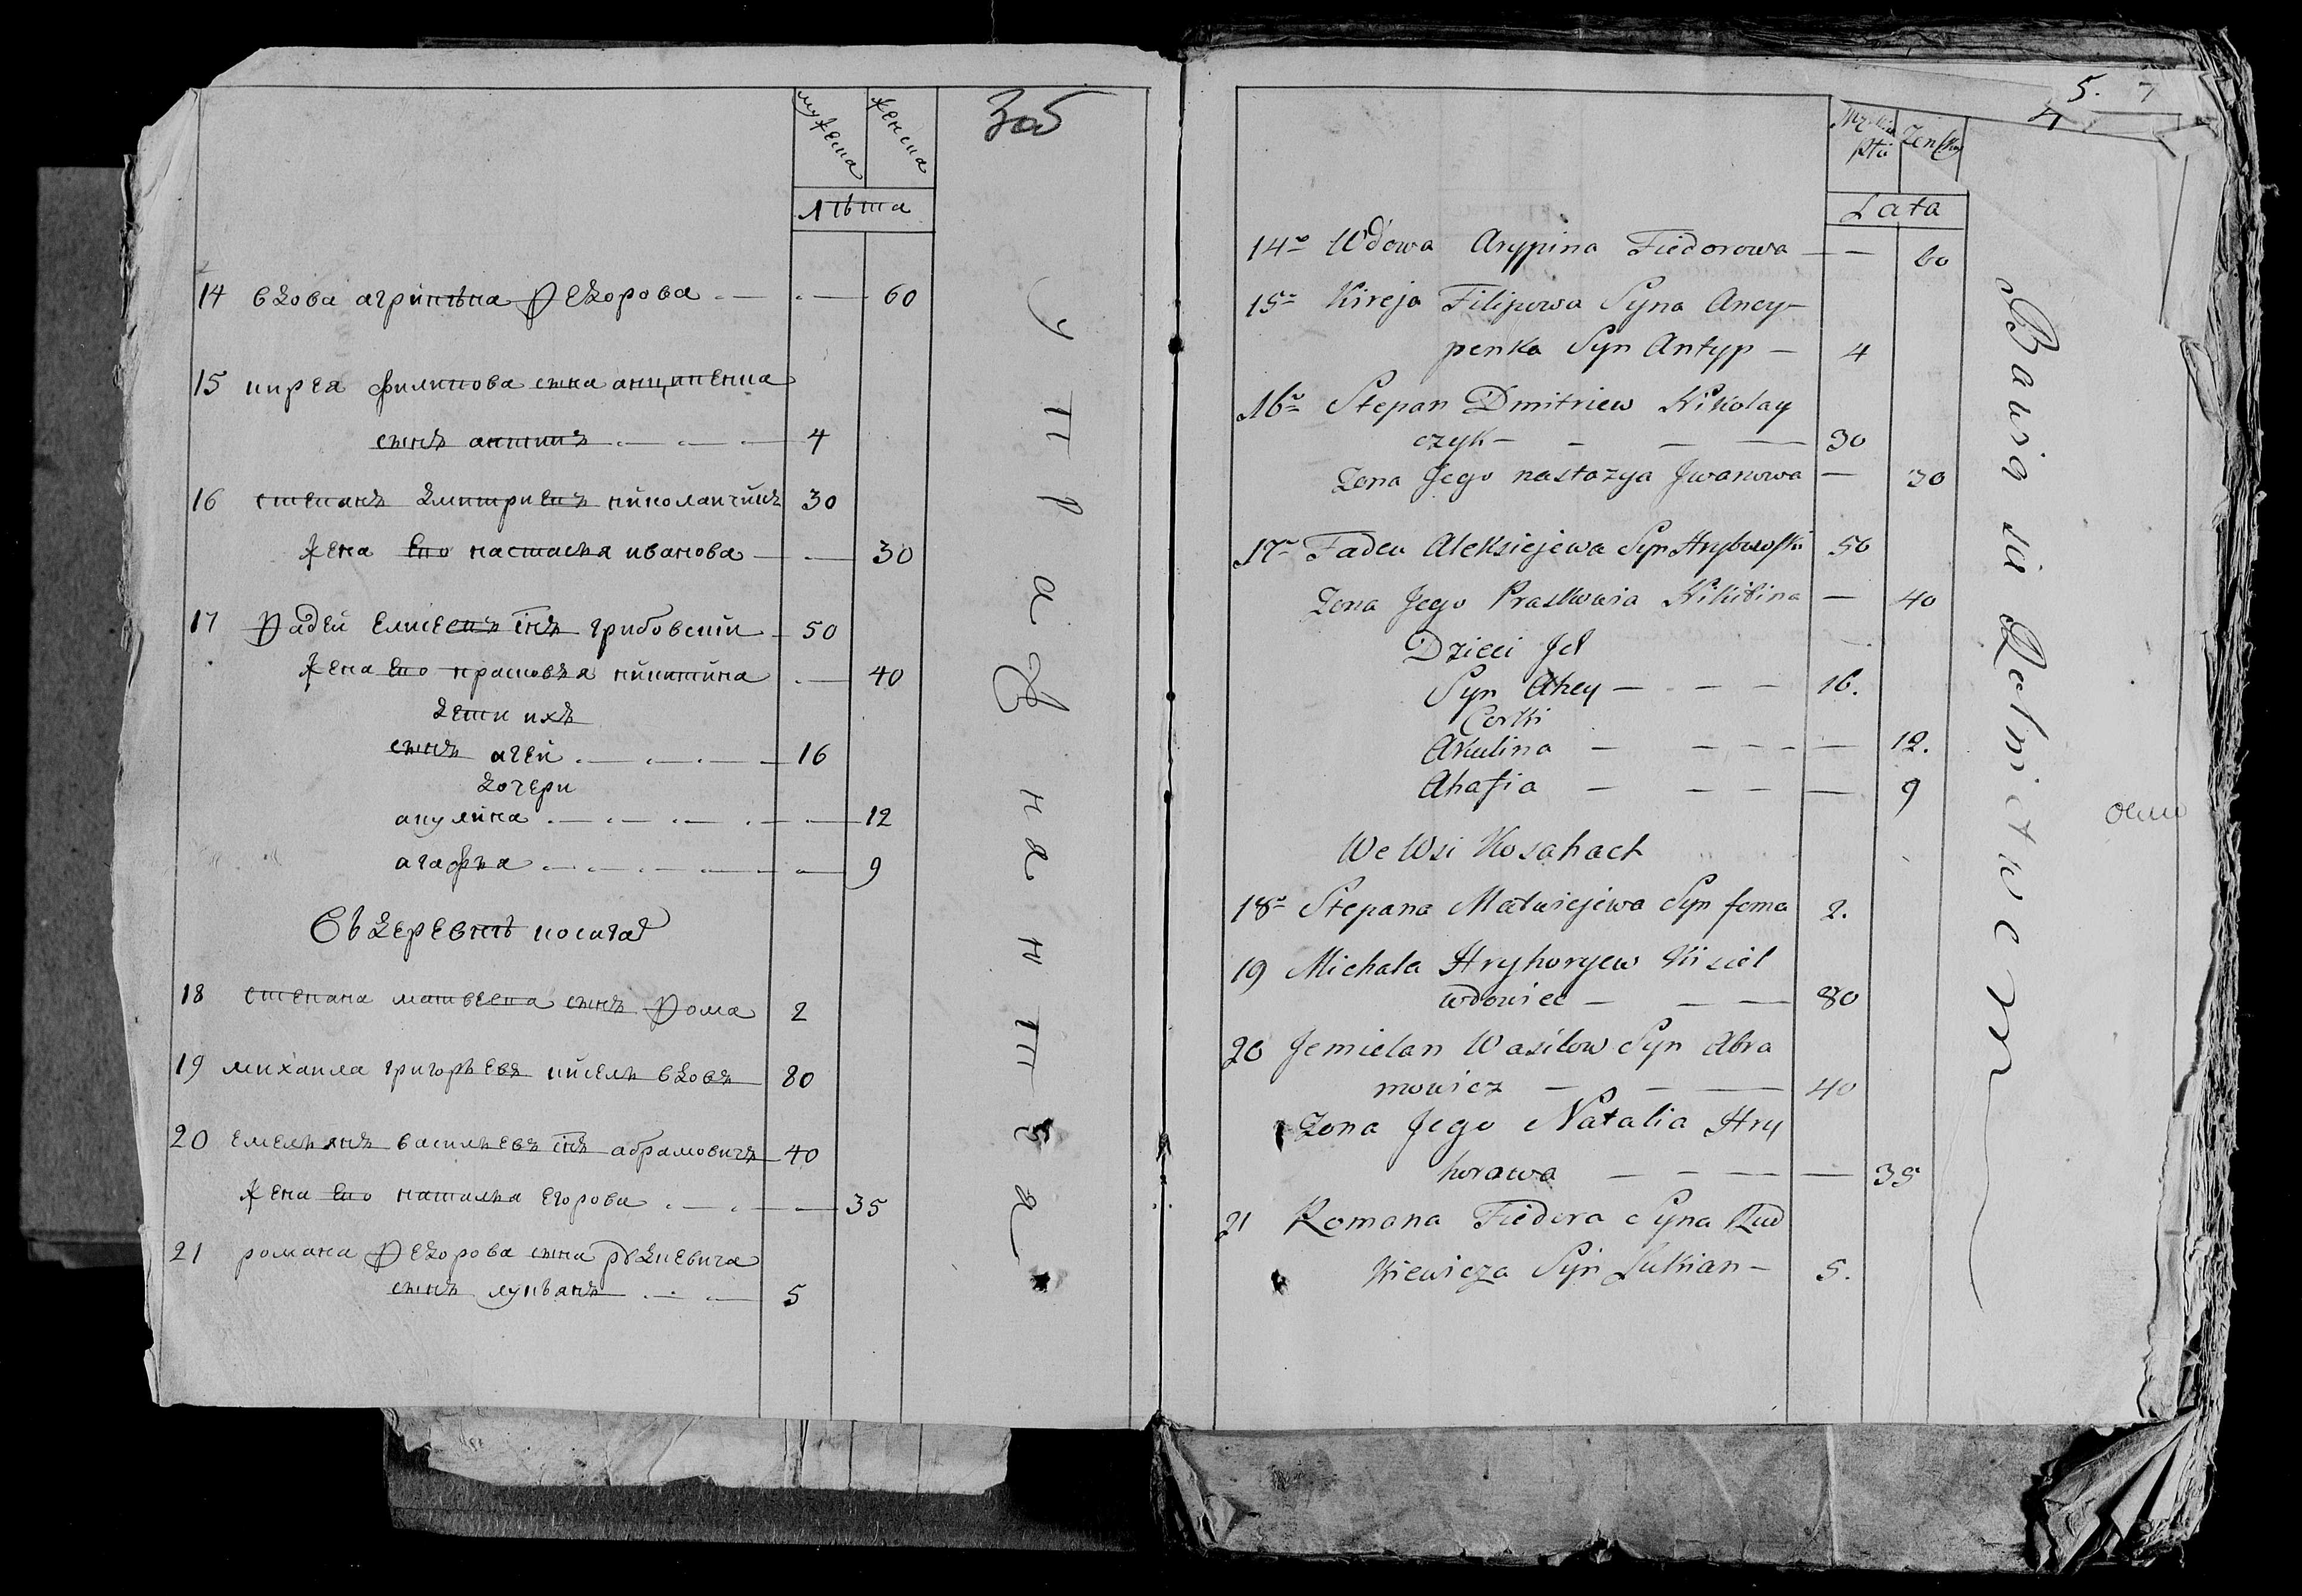 мужеска
женска
Зоб
лѣта
14 вдова агрипѣна Федорова 60
15 кирея филипова сына анципенка
сынъ антипъ 4
16 степанъ дмитриевъ николайчикъ 30
жена его настасья иванова 30
17 Фадей елисеевъ снъ грибовский 50
жена его прасковья никитина 40
дети ихъ
сынъ агей 16
дочери
акулина 12
агафья 9
Въ деревнѣ косага
18 степана матвеева сынъ Фома 2
19 михаила григорьевъ кисель вдовъ 80
20 емельянъ васильевъ снъ абрамовичъ 40
жена его наталья егорова 35
21 романа Федорова сына рудкевича
сынъ лукьянъ 5
5. 7
4
Męskiej płci
Zenskiey
Lata
14 Wdowa Arypina Fiedorowa 60
15 Kireja Filipowa Syna Ancy-
penka Syn Antyp 4
16 Stepan Dmitriew Nikolay
czyk 30
Zona Jego nastazya Jwanowa 30
17 Fadeu Aleksiejewa Syn Hrybowski 50
Zona Jego Praskowia Nikitina 40
Dzieci Jch
Syn Ahey 16.
Corki
Akulina 12.
Ahafia 9
We Wsi Kosahach
18 Stepana Matwiejewa Syn foma 2.
19 Michala Hryhoryew Kisiel
wdowiec 80
20 Jemielan Wasilow Syn Abra
mowicz 40
Zona Jego Natalia Hry
horawa 35
21 Romana Fiedora Syna Rud
kiewicza Syn Łukian 5.
Bawią się Rolnictwem